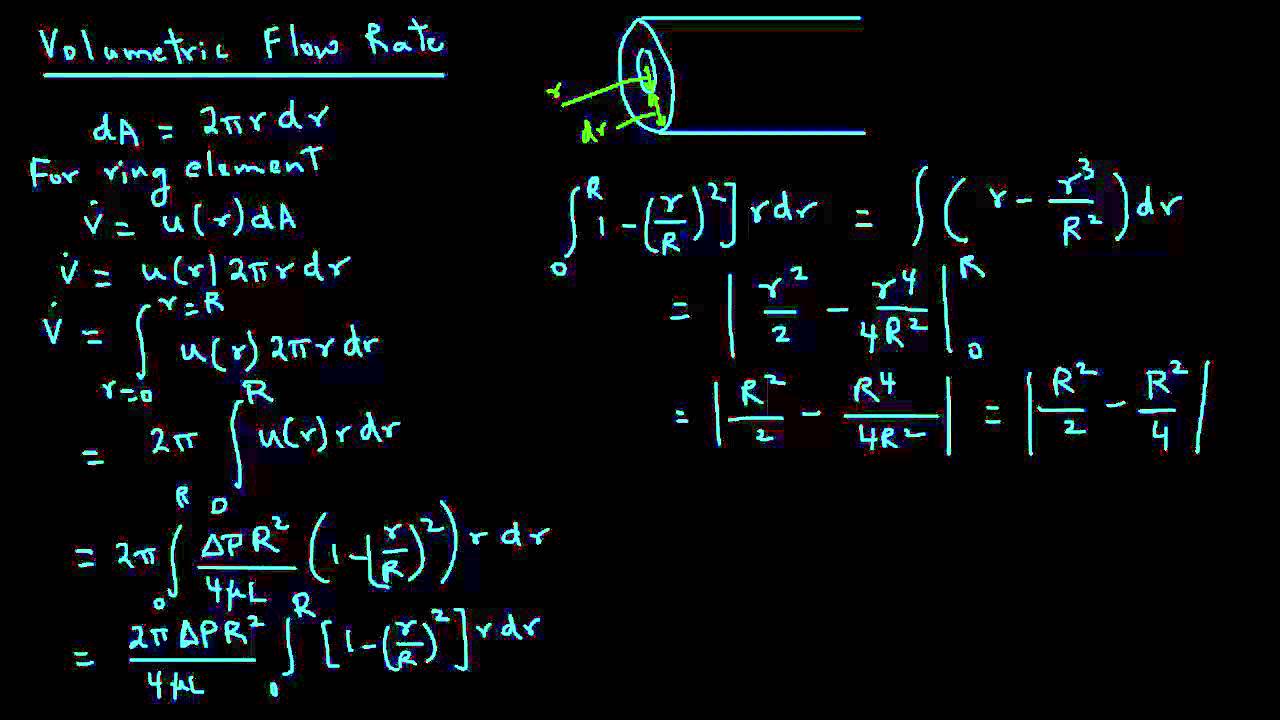 Volumetric Flow Rate
dA = 2πr dr
For ring element
V̇ = u(r)dA
V̇ = u(r) 2πr dr
V̇ = ∫_{r=0}^{r=R} u(r) 2πr dr
= 2π ∫_0^R u(r) r dr
= 2π ∫_0^R ΔPR²/4μL (1-(r/R)²) r dr
= 2πΔPR²/4μL ∫_0^R [1-(r/R)²] r dr
r
dr
∫_0^R 1-(r/R)²] r dr = ∫(r - r³/R²)dr
= | r²/2 - r⁴/4R² |_0^R
= | R²/2 - R⁴/4R² | = | R²/2 - R²/4 |